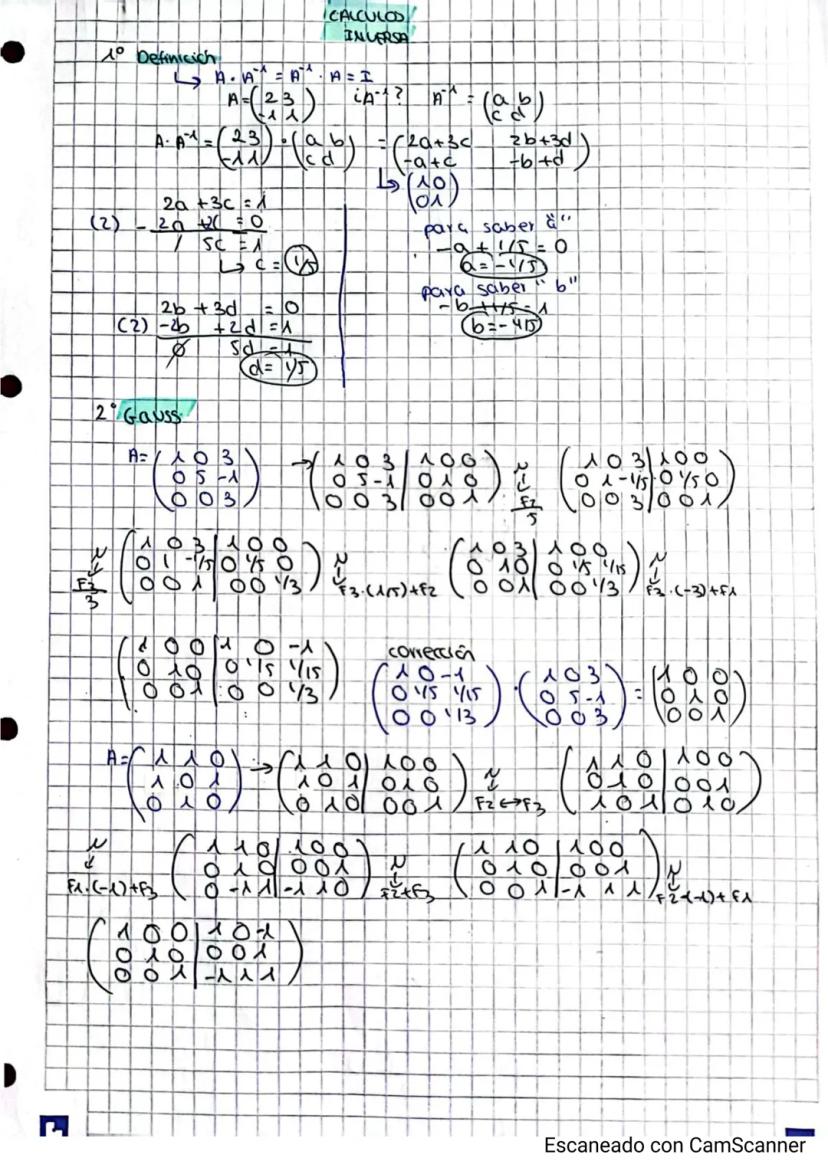 CALCULOS
INVERSA
1º Definición
↳ A · A⁻¹ = A⁻¹ · A = I
A = (2 3 / -1 1) ¿A⁻¹? A⁻¹ = (a b / c d)
A · A⁻¹ = (2 3 / -1 1) · (a b / c d) = (2a+3c 2b+3d / -a+c -b+d)
↳ (1 0 / 0 1)
2a + 3c = 1
(2) - 2a + 2c = 0
/ 5c = 1
↳ c = 1/5
para saber "a"
-a + 1/5 = 0
a = -1/5
para saber "b"
-b + 1/5 = 1
b = -4/5
2b + 3d = 0
(2) -2b + 2d = 1
0 5d = 1
d = 1/5
2º Gauss
A = (1 0 3 / 0 5 -1 / 0 0 3) → (1 0 3 | 1 0 0 / 0 5 -1 | 0 1 0 / 0 0 3 | 0 0 1) ~ ↓ F2/5 (1 0 3 | 1 0 0 / 0 1 -1/5 | 0 1/5 0 / 0 0 3 | 0 0 1)
~ ↓ F3/3 (1 0 3 | 1 0 0 / 0 1 -1/5 | 0 1/5 0 / 0 0 1 | 0 0 1/3) ~ ↓ F3·(1/5)+F2 (1 0 3 | 1 0 0 / 0 1 0 | 0 1/5 1/15 / 0 0 1 | 0 0 1/3) ~ ↓ F3·(-3)+F1
(1 0 0 | 1 0 -1 / 0 1 0 | 0 1/5 1/15 / 0 0 1 | 0 0 1/3)
corrección
(1 0 -1 / 0 1/5 1/15 / 0 0 1/3) · (1 0 3 / 0 5 -1 / 0 0 3) = (1 0 0 / 0 1 0 / 0 0 1)
A = (1 1 0 / 1 0 1 / 0 1 0) → (1 1 0 | 1 0 0 / 1 0 1 | 0 1 0 / 0 1 0 | 0 0 1) ~ ↓ F2↔F3 (1 1 0 | 1 0 0 / 0 1 0 | 0 0 1 / 1 0 1 | 0 1 0)
~ ↓ F1·(-1)+F3 (1 1 0 | 1 0 0 / 0 1 0 | 0 0 1 / 0 -1 1 | -1 1 0) ~ ↓ F2+F3 (1 1 0 | 1 0 0 / 0 1 0 | 0 0 1 / 0 0 1 | -1 1 1) ~ ↓ F2·(-1)+F1
(1 0 0 | 1 0 -1 / 0 1 0 | 0 0 1 / 0 0 1 | -1 1 1)
Escaneado con CamScanner